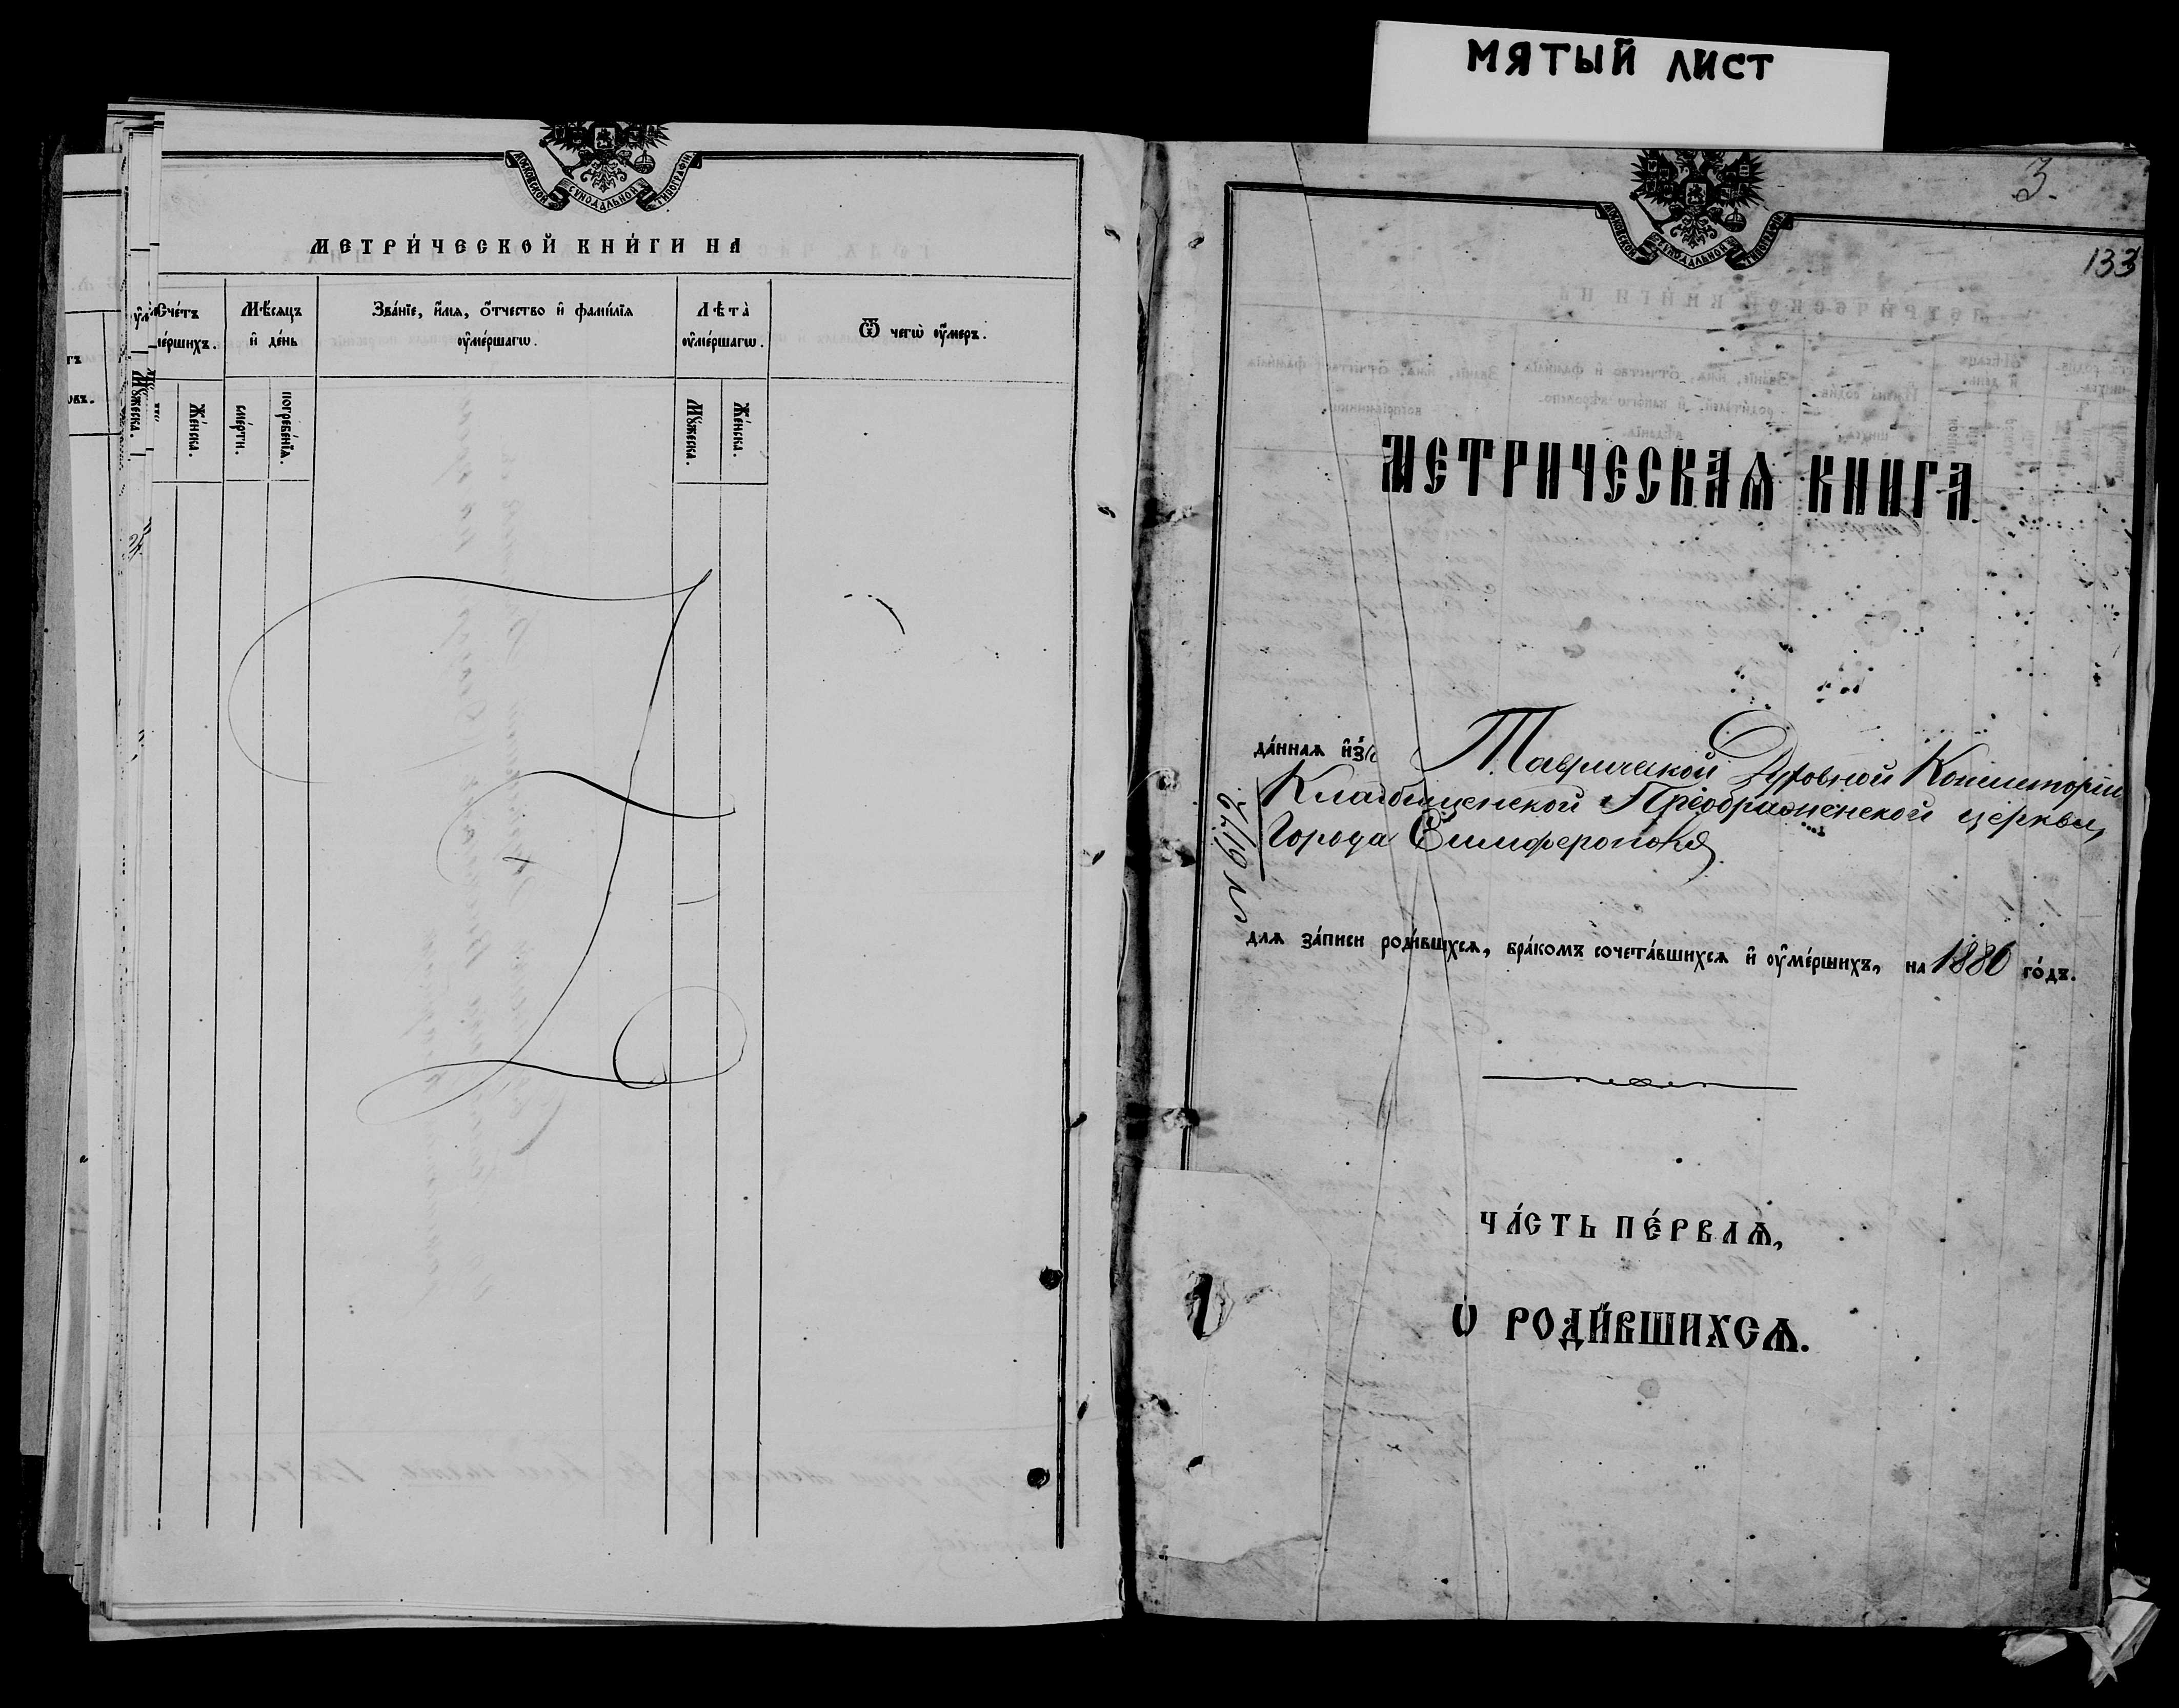 МЯТЫЙ ЛИСТ
МОСКОВСКОЙ СѴНОДАЛЬНОЙ ТИПОГРАФІИ
МЕТРИ́ЧЕСКОЙ КНИ́ГИ НА
Сче́тъ
Мѣ́сяцъ
и҆ де́нь
Зва́нїе, и҆́мѧ, ѻ҆́тчество и҆ фами́лїѧ
ᲂу҆ме́ршагѡ.
Лѣ́та̀
ᲂу҆ме́ршагѡ.
Ѿ чегѡ̀ ᲂу҆́меръ.
Же́нска.
сме́рти.
погребе́нїѧ.
Мꙋ́жеска.
Же́нска.
3.
133
МОСКОВСКОЙ СѴНОДАЛЬНОЙ ТИПОГРАФІИ
МЕТРИЧЕСКАѦ КНИГА
да́ннаѧ и҆з̾ Таврической Духовной Консисторіи
Кладбищенской Преображенской церкви,
Города Симферополя
длѧ за́писи роди́вшихсѧ, бра́комъ сочета́вшихсѧ и҆ ᲂу҆ме́ршихъ, на 1886 го́дъ.
ЧА́СТЬ ПЕ́РВАѦ,
Ѡ҆ РОДИ́ВШИХСѦ.